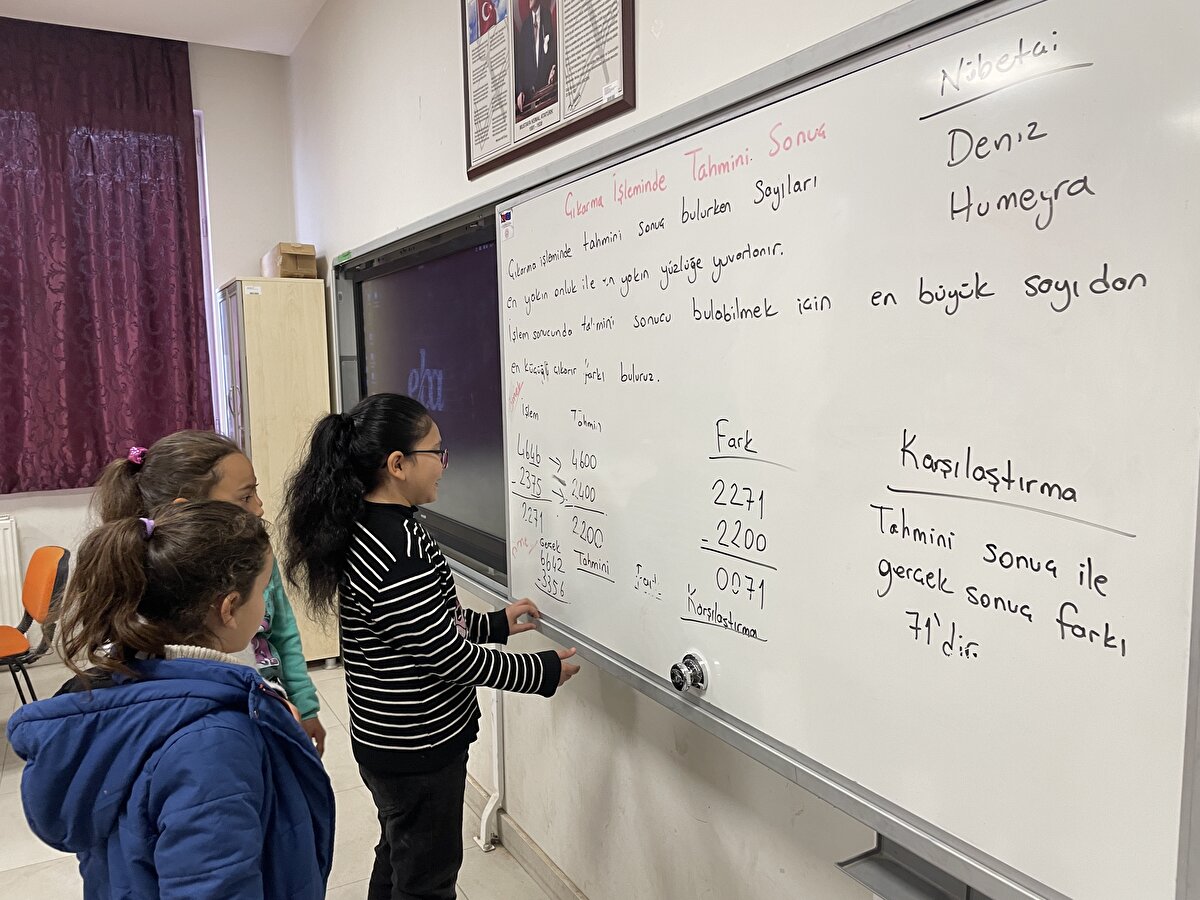 MUSTAFA KEMAL ATATÜRK
eba
Nübetai
Deniz
Humeyra
Çıkarma İşleminde Tahmini Sonuç
Çıkarma işleminde tahmini sonuç bulurken Sayıları
en yakın onluk ile en yakın yüzlüğe yuvarlanır.
İşlem sonucunda tahmini sonucu bulabilmek için en büyük sayıdan
en küçüğü çıkarır farkı buluruz.
İşlem Tahmin
4646 → 4600
- 2375 → - 2400
2271 2200
Gerçek Tahmini
6642
- 3356
Fark
2271
- 2200
0071
Karşılaştırma
Karşılaştırma
Tahmini sonuç ile
gerçek sonuç farkı
71'dir.